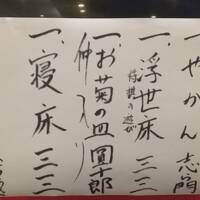 一、やかん 志ん門
一、浮世床 三三
将棋の遊び
一、お菊の皿 圓十郎
仲入り
一、寝床 三三